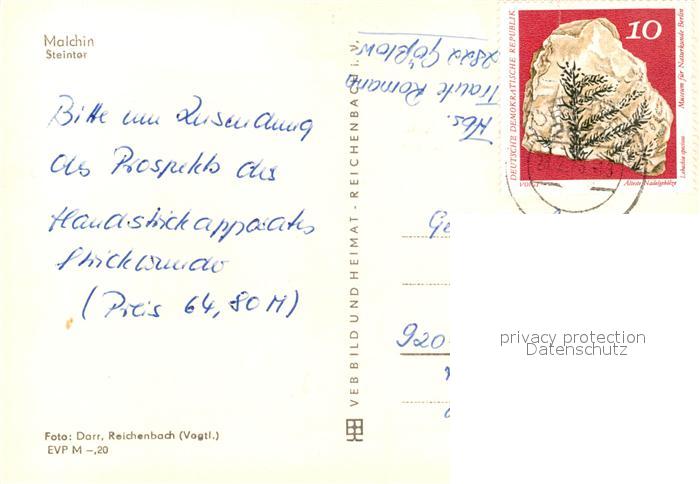 Malchin
Steintor
Bitte um Zusendung
des Prospekts des
Handstrickapparates
Strickwunder
(Preis 64,80 M)
Foto: Darr, Reichenbach (Vogtl.)
EVP M –,20
VEB BILD UND HEIMAT · REICHENBACH i. V.
Abs.
Traute Romann
Ge
920
DEUTSCHE DEMOKRATISCHE REPUBLIK
10
Museum für Naturkunde Berlin
Lebachia speciosa
VOIGT
Älteste Nadelgehölze
privacy protection
Datenschutz